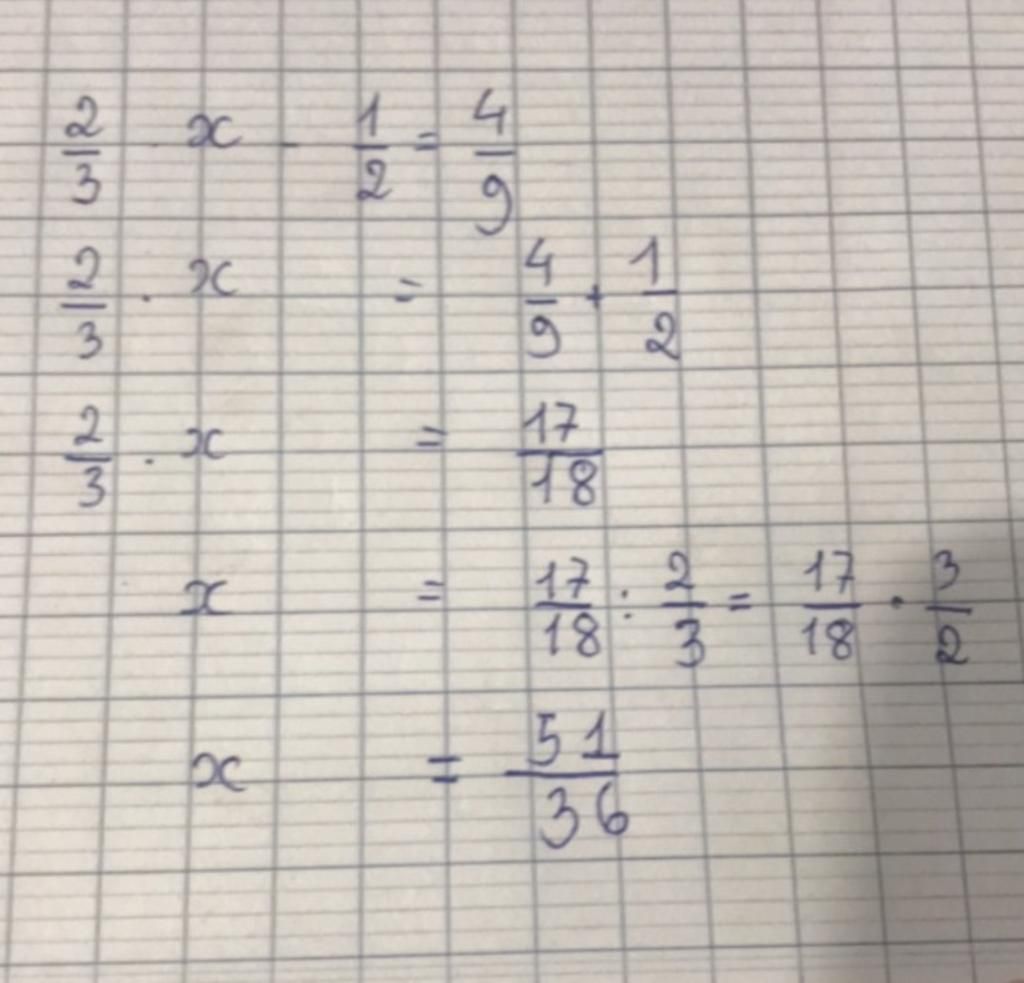 2/3 . x - 1/2 = 4/9
2/3 . x = 4/9 + 1/2
2/3 . x = 17/18
x = 17/18 : 2/3 = 17/18 . 3/2
x = 51/36